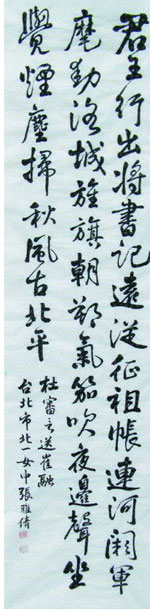 君王行出將書記遠從征祖帳連河闕軍
麾動洛城旌旗朝朔氣笳吹夜邊聲坐
覺煙塵掃秋風古北平
杜審言送崔融
台北市北一女中張雅倩